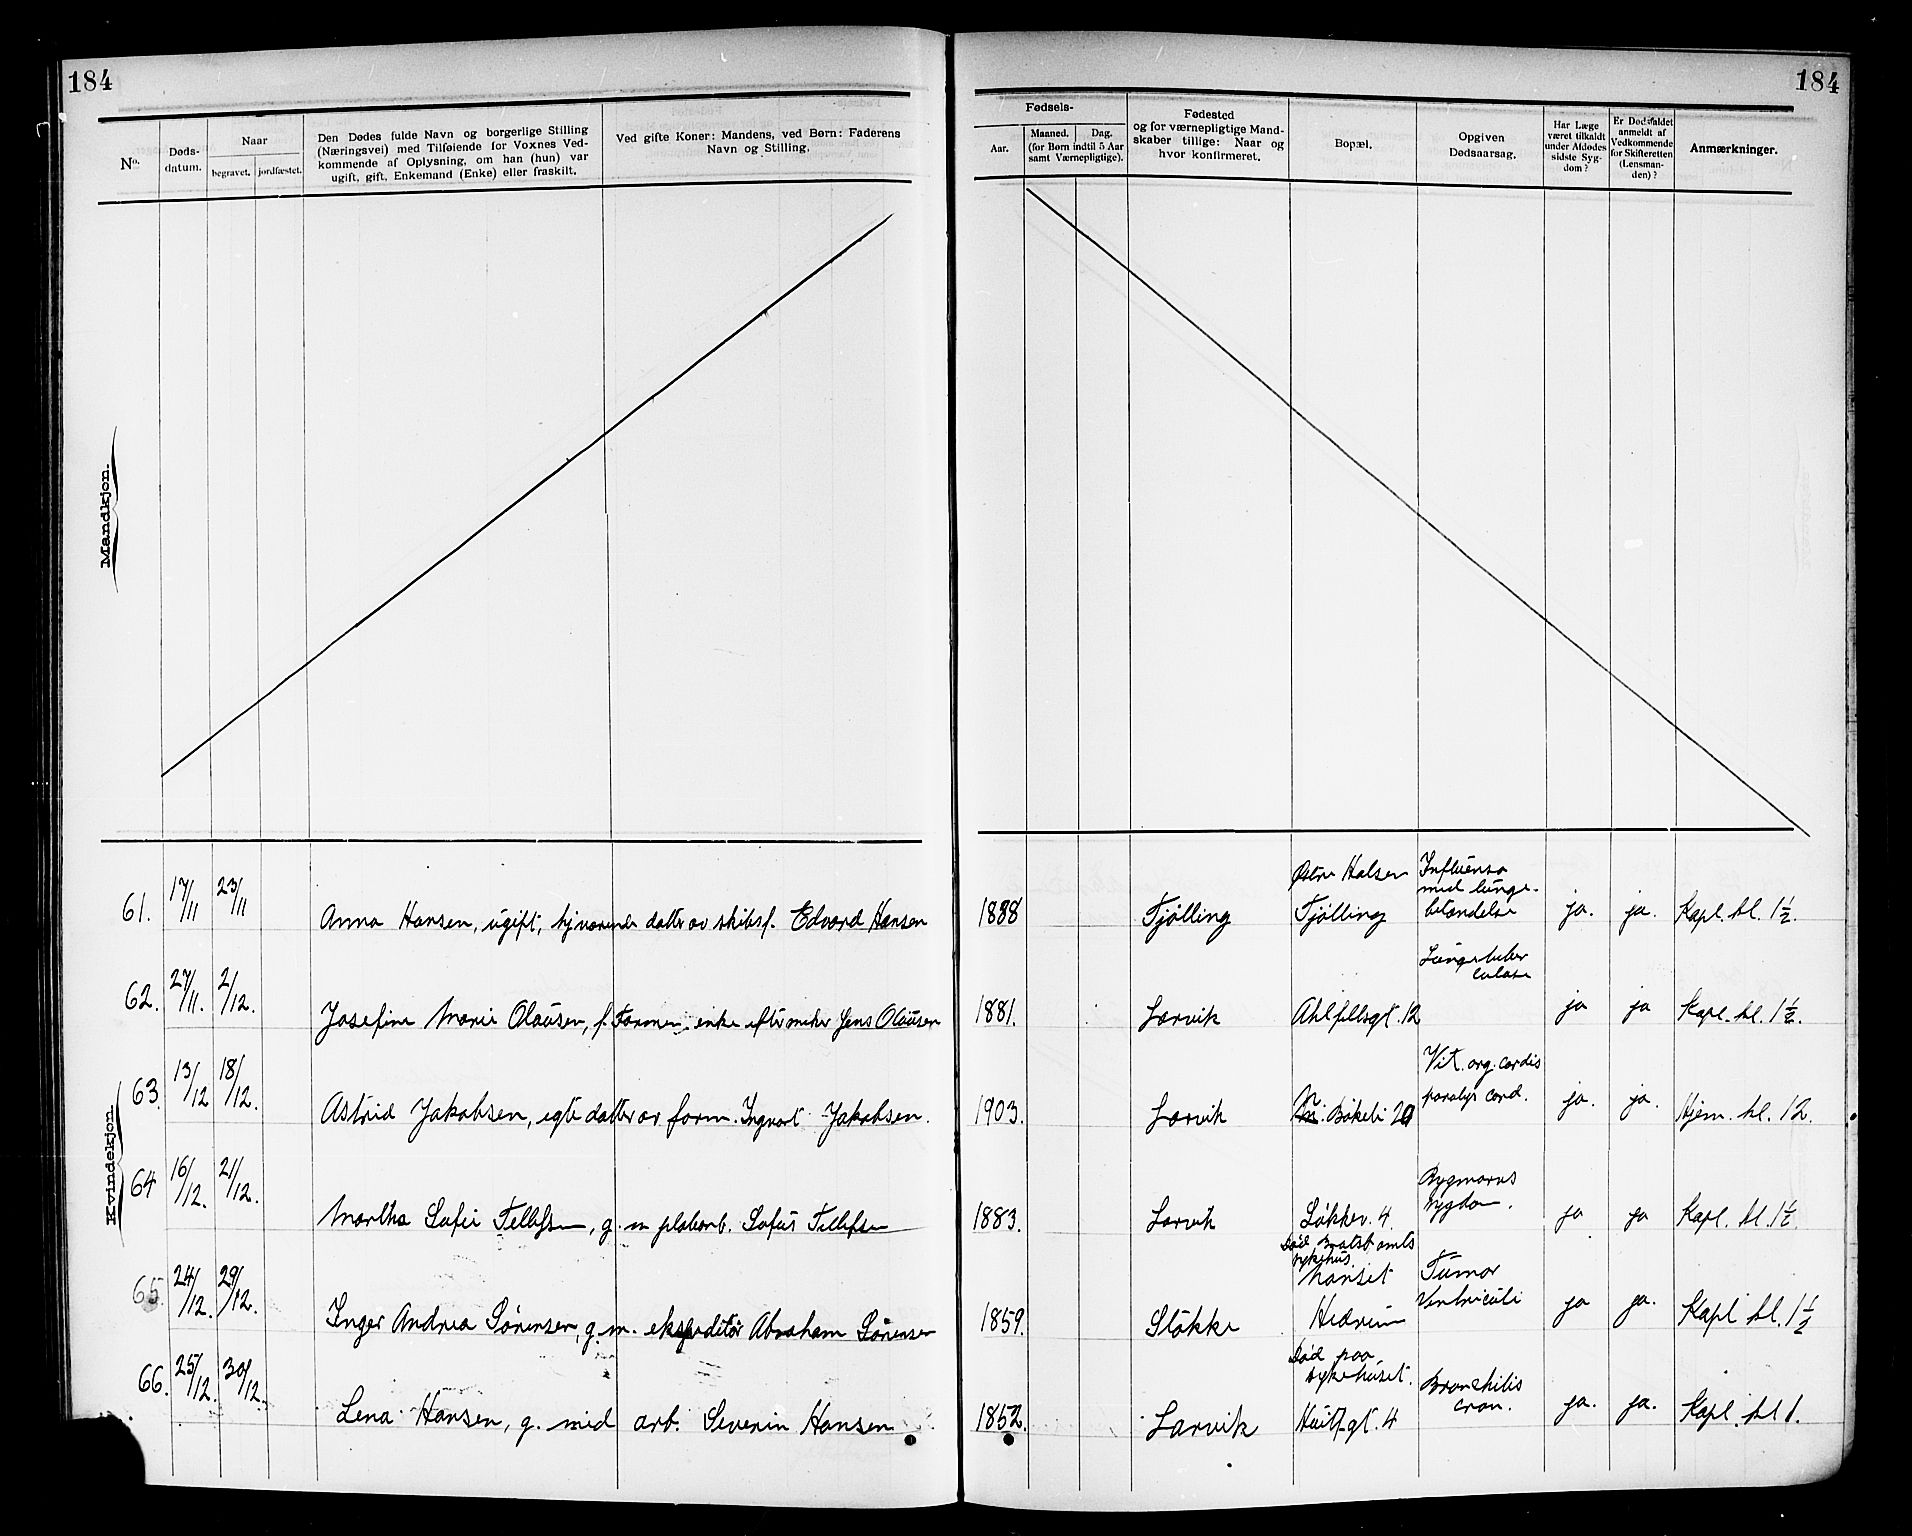 184
184
No. Døds-datum. Naar begravet. jordfæstet. Den Dødes fulde Navn og borgerlige Stilling (Næringsvei) med Tilføiende for Voxnes Vedkommende af Oplysning, om han (hun) var ugift, gift, Enkemand (Enke) eller fraskilt. Ved gifte Koner: Mandens, ved Børn: Faderens Navn og Stilling.
Fødsels- Aar. Maaned. Dag. (for Børn indtil 5 Aar samt Værnepligtige). Fødested og for værnepligtige Mandskaber tillige: Naar og hvor konfirmeret. Bopæl. Opgiven Dødsaarsag. Har Læge været tilkaldt under Afdødes sidste Sygdom? Er Dødsfaldet anmeldt af Vedkommende for Skifteretten (Lensmanden)? Anmærkninger.
Mandkjøn.
Kvindekjøn.
61. 17/11 23/11 Anna Hansen, ugift, hjværende datter av skibsf. Edvard Hansen 1888 Tjølling Østre Halsen Tjølling Influensa med lunge-betændelse ja. ja. Kapl. kl. 1½.
62. 27/11. 2/12. Josefine Marie Olausen, f. enke efter Jens Olausen 1881. Larvik Ahlfellsgt. 12 Lungetuberculose ja ja Kapl. kl. 1½.
63. 13/12 18/12. Astrid Jakobsen, egte datter av form. Ingvart Jakobsen. 1903. Larvik Bøkeli Vit. org. cordis paralys cord. ja. ja. Hjem. kl. 12.
64 16/12. 21/12. Martha Sofie Tellefsen, g. m platearb. Sofus Tellefsen 1883. Larvik Løkkev. 4. Rygmarvs sygdom. ja ja Kapl. kl. 1½.
65. 24/12. 29/12. Inger Andrea Sørensen, g. m. ekspeditør Abraham Sørensen 1859. Stokke Død Bratsb. amts sykehus. Nanset Hedrum Tumor Ventriculi ja ja. Kapl kl. 1½
66. 25/12. 30/12. Lena Hansen, g. med arb. Severin Hansen 1852. Larvik Død paa sykehuset. Huitf.gt. 4 Bronchitis cron. ja. ja. Kapl. kl 1.